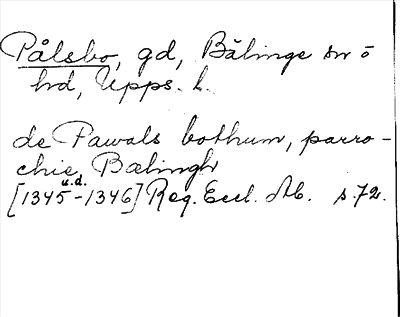 Pålsbo, gd, Bälinge sn o
hrd, Upps. l.
de Pawals bothum, parro-
chie, Bælingh
u.d.
[1345-1346] Reg. Eccl. Ab. s. 72.